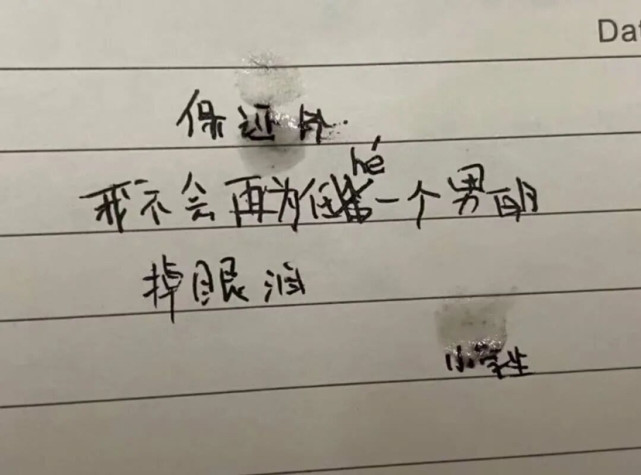 Da
保证书
我不会再为任hé一个男明
掉眼泪
小学生